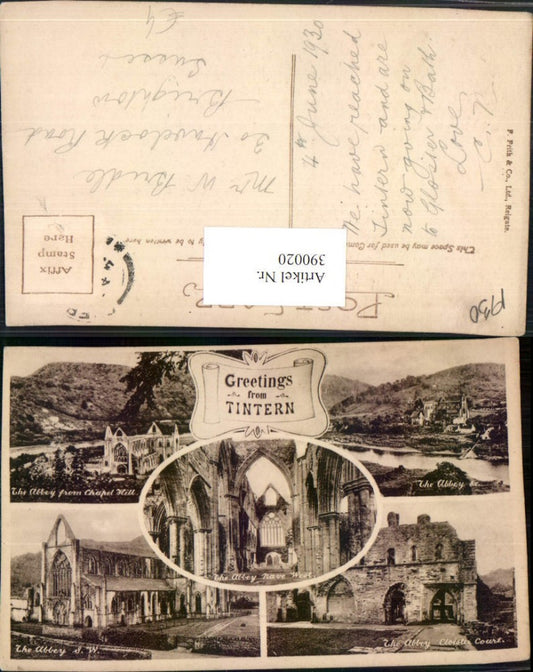 POST CARD
This Space may be used for
to be written here
Affix
Stamp
Here
Artikel Nr.
390020
F. Frith & Co., Ltd., Reigate.
4th June 1930
We have reached
Tintern and are
now going on
to Gloster & Bath
Love
Mr W Bridle
30 Havelock Road
Brighton
Sussex
1930
Greetings
from
TINTERN
The Abbey from Chapel Hill.
The Abbey
The Abbey Nave West
The Abbey S.W.
The Abbey Cloister Court.